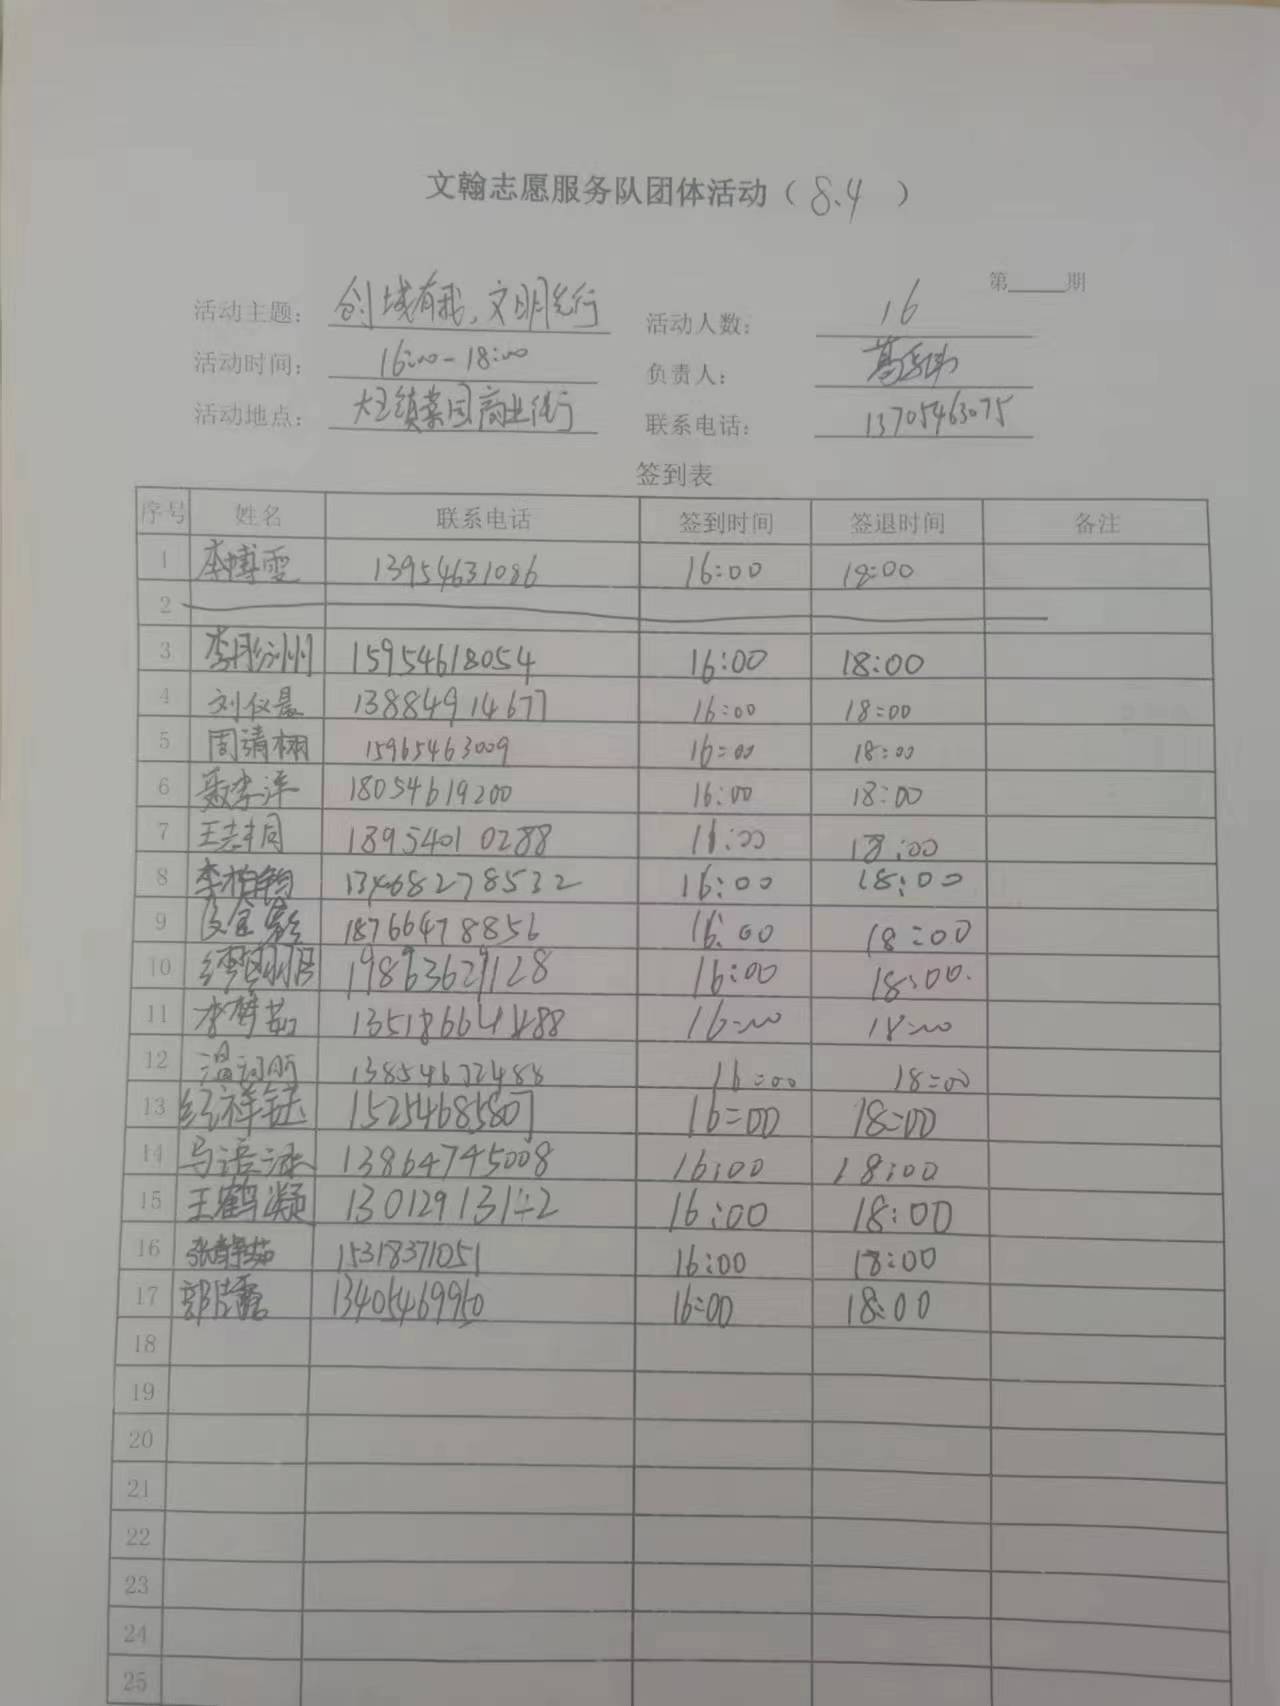 文翰志愿服务队团体活动（8.4）
第____期
活动主题：创城有我，文明先行 活动人数：16
活动时间：16:00-18:00 负责人：
活动地点：大王镇菜园商业街 联系电话：13705463075
签到表
序号 姓名 联系电话 签到时间 签退时间 备注
1 李博雯 13954631086 16:00 18:00
2
3 李 15954618054 16:00 18:00
4 刘仪晨 13884914677 16:00 18:00
5 周清栩 15965463009 16:00 18:00
6 聂李洋 18054619200 16:00 18:00
7 王 18954010288 16:00 18:00
8 李柏翰 13468278532 16:00 18:00
9 18766478856 16:00 18:00
10 19863629128 16:00 18:00.
11 李梦茹 16:00 18:00
12 温 13854672488 16:00 18:00
13 纪祥钰 16:00 18:00
14 马语涵 13864745008 16:00 18:00
15 王鹤凝 16:00 18:00
16 张静茹 15318371051 16:00 18:00
17 郭 13405469950 16:00 18:00
18
19
20
21
22
23
24
25